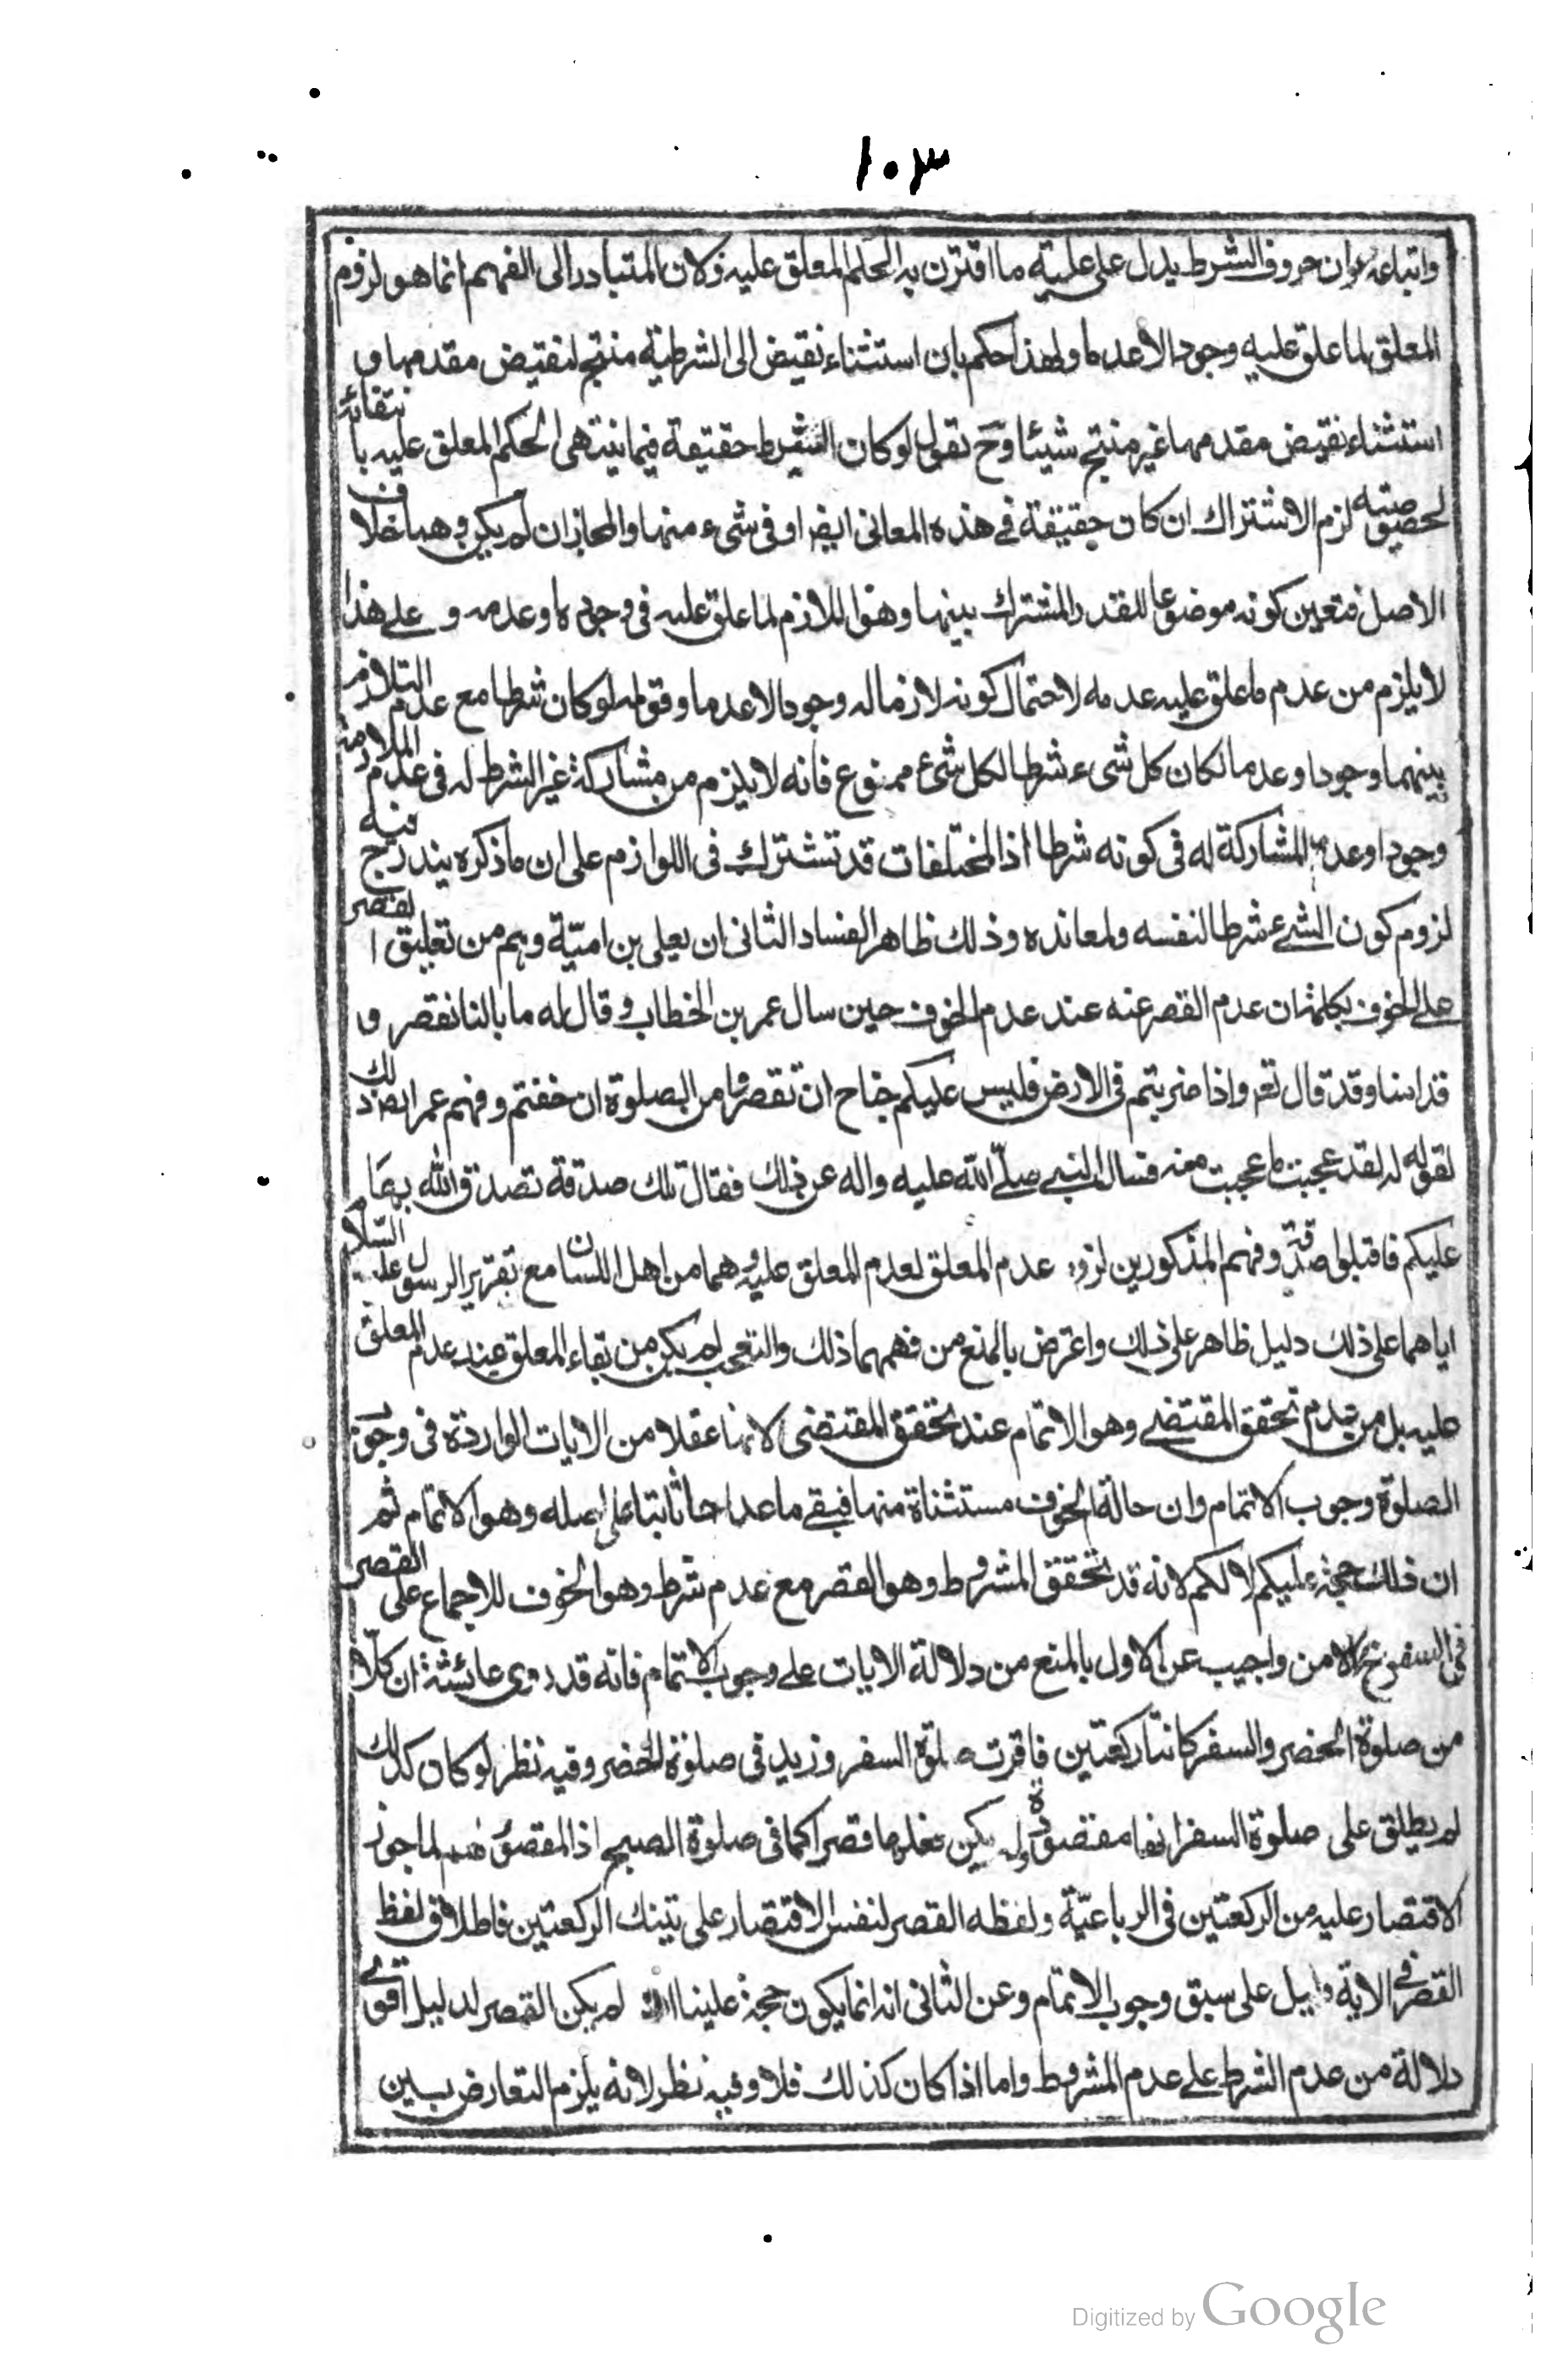 ١٠٣
واتباعه وان حروف الشرط يدل على علية ما اقترن به الحكم المعلق عليه ولان المتبادر الى الفهم انما هو لزوم
المعلق لما علق عليه وجودا لا عدما ولهذا حكم بان استثناء نقيض الى الشرطية منتج لنقيض مقدمها و
استثناء نقيض مقدمها غير منتج شيئا وح نقول لو كان الشرط حقيقة فيما ينتهى الحكم المعلق عليه بانتفائه
لخصوصيته لزم الاشتراك ان كان حقيقة في هذه المعانى ايضا او فى شىء منها والمجاز ان لم يكن وهما خلاف
الاصل فتعين كونه موضوعا للقدر المشترك بينها وهو اللازم لما علق عليه فى وجوده او عدمه و على هذا
لا يلزم من عدم ما علق عليه عدمه لاحتمال كونه لازما له وجودا لا عدما وقوله لو كان شرطا مع عدم التلازم
بينهما وجودا وعدما لكان كل شىء شرطا لكل شىء ممنوع فانه لا يلزم من مشاركة غير الشرط له فى عدم الملازمة
وجودا وعدما المشاركة له فى كونه شرطا اذ المختلفات قد تشترك فى اللوازم على ان ما ذكره يندرج فيه
لزوم كون الشىء شرطا لنفسه ولمعانده وذلك ظاهر الفساد الثانى ان يعلى بن امية وهم من تعليق القصر
على الخوف بكلمة ان عدم القصر عنه عند عدم الخوف حين سال عمر بن الخطاب وقال له ما بالنا نقصر و
قد امنا وقد قال تعم واذا ضربتم فى الارض فليس عليكم جناح ان تقصروا من الصلوة ان خفتم وفهم عمر ايضا ذلك
لقوله له لقد عجبت ما عجبت منه فسال النبى صلى الله عليه واله عن ذلك فقال تلك صدقة تصدق الله بها
عليكم فاقبلوا صدقته وفهم المذكورين لزوم عدم المعلق لعدم المعلق عليه وهما من اهل اللسان مع تقرير الرسول عليه السلام
اياهما على ذلك دليل ظاهر على ذلك واعترض بالمنع من فهمهما ذلك والتعجب لم يكن من بقاء المعلق عند عدم المعلق
عليه بل من عدم تحقق المقتضى وهو الاتمام عند تحقق المقتضى لانهما عقلا من الايات الواردة فى وجوب
الصلوة وجوب الاتمام وان حالة الخوف مستثناة منها فبقى ما عداها ثابتا على اصله وهو الاتمام ثم
ان ذلك حجة عليكم لا لكم لانه قد تحقق المشروط وهو القصر مع عدم شرط وهو الخوف للاجماع على القصر
فى السفر مع الامن واجيب عن الاول بالمنع من دلالة الايات على وجوب الاتمام فانه قد روى عائشة ان كلا
من صلوة الحضر والسفر كانتا ركعتين فاقرت صلوة السفر وزيد فى صلوة الحضر وفيه نظر لو كان كذلك
لم يطلق على صلوة السفر انها مقصورة ولم يكن فعلها قصرا كما فى صلوة الصبح اذ المقصور لما جوز
الاقتصار عليه من الركعتين فى الرباعية ولفظه القصر لنفس الاقتصار على تينك الركعتين فاطلاق لفظ
القصر فى الاية دليل على سبق وجوب الاتمام وعن الثانى انه انما يكون حجة علينا لم يكن القصر لدليل اقوى
دلالة من عدم الشرط على عدم المشروط واما اذا كان كذلك فلا وفيه نظر لانه يلزم التعارض بين
Digitized by Google